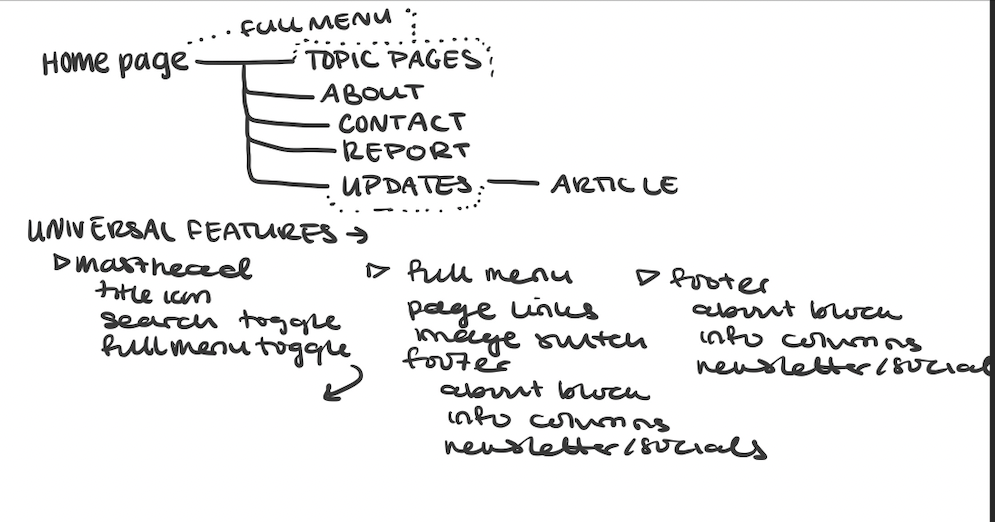 FULL MENU
Home page TOPIC PAGES
ABOUT
CONTACT
REPORT
UPDATES ARTICLE
UNIVERSAL FEATURES →
▷ masthead
title icon
search toggle
full menu toggle
▷ full menu
page links
image switch
footer
about block
info columns
newsletter/socials
▷ footer
about block
info columns
newsletter/social